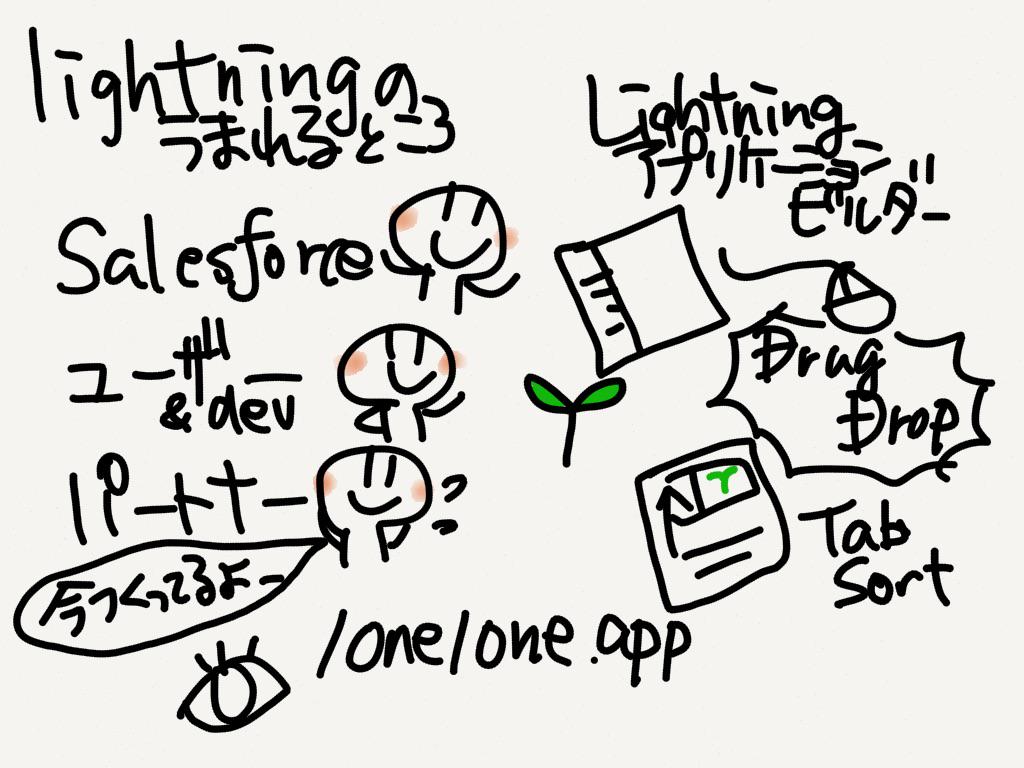 lightningの
うまれるところ
Salesforce
ユーザ
& dev
パートナー
今つくってるよー
/one/one.app
Lightning
アプリケーション
ビルダー
Drag
Drop
Tab
Sort